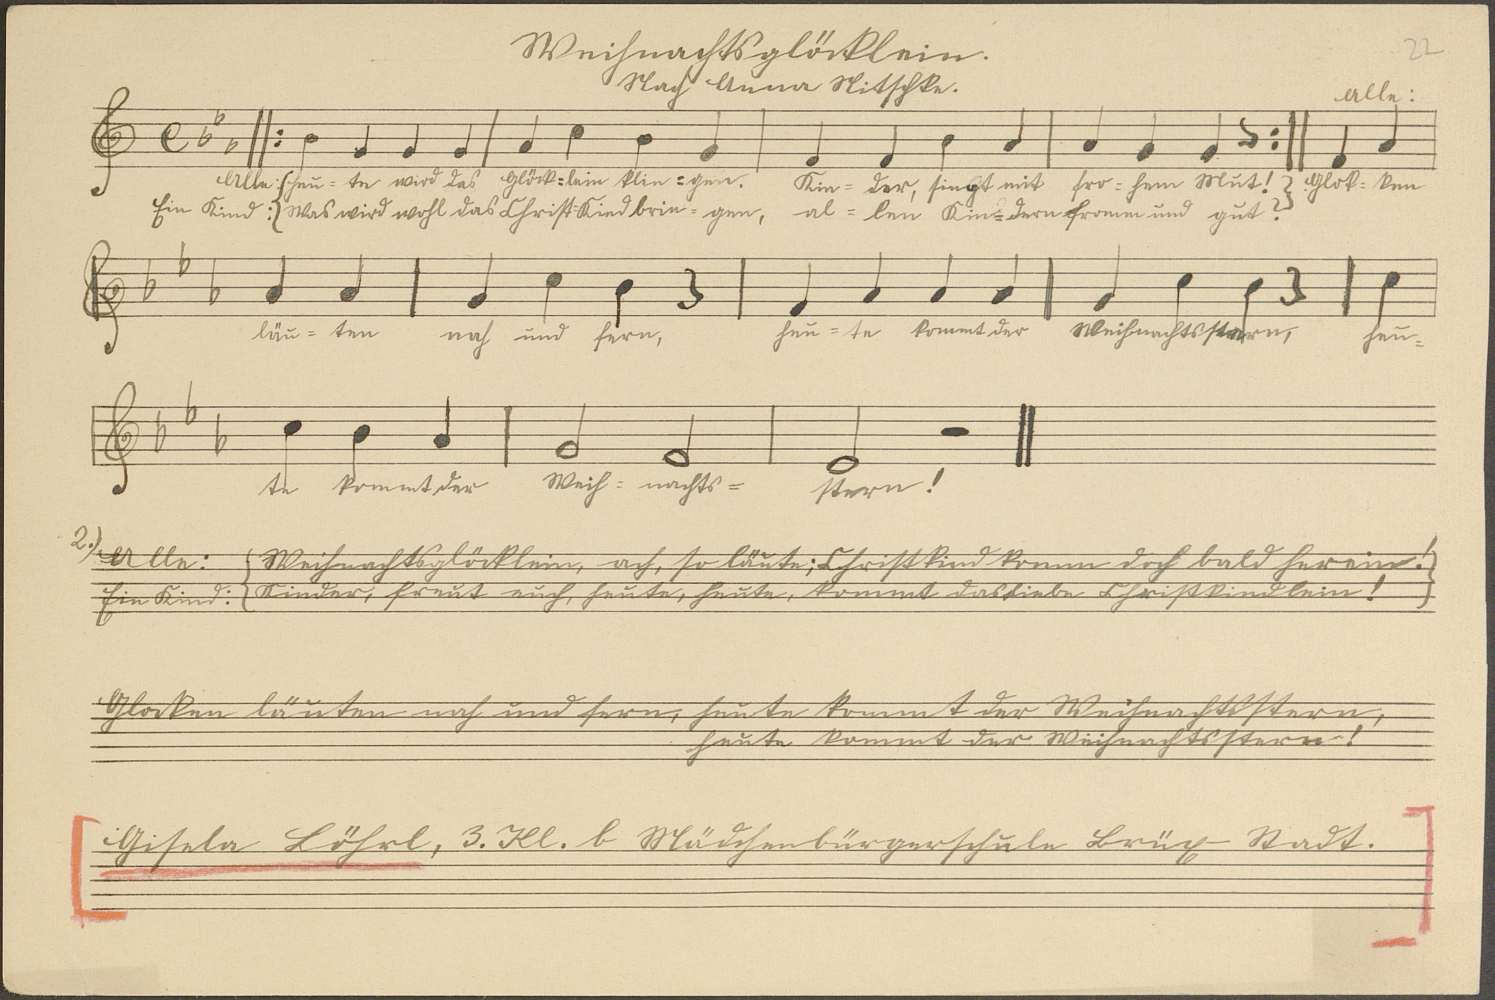 22
Weihnachtsglöcklein.
Nach Anna Nitschke.
Alle:
Alle: {heu-te wird das Glöck-lein klin-gen. Kin-der, singt mit fro-hem Mut!} Glok-ken
Ein Kind: {Was wird wohl das Christ-Kind brin-gen, al-len Kin-dern fromm und gut?}
läu-ten nah und fern, heu-te kommt der Weihnachtsstern, heu-
te kommt der Weih-nachts-stern!
2.) Alle: {Weihnachtsglöcklein, ach, so läute; Christkind komm doch bald herein!}
Ein Kind: {Kinder, freut euch, heute, heute, kommt das liebe Christkindlein!}
Glocken läuten nah und fern, heute kommt der Weihnachtsstern,
heute kommt der Weihnachtsstern!
Gisela Löhrl, 3. Kl. b Mädchenbürgerschule Brüx Stadt.